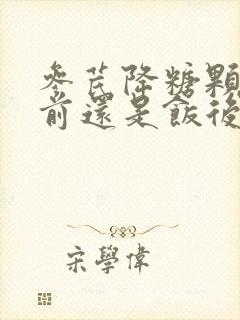 參芪降糖顆
前還是飯後
宋學偉